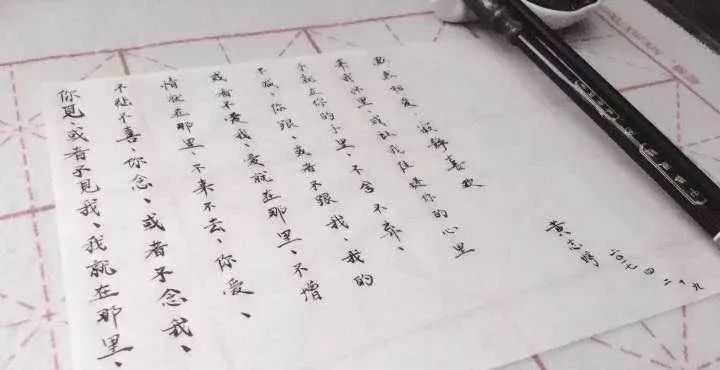 你見、或者不見我、我就在那里、
不悲不喜、你念、或者不念我、
情就在那里、不来不去、你爱、
或者不爱我、爱就在那里、不增
不减、你跟、或者不跟我、我的
手就在你的手里、不舍不弃、
来我怀里、或让我住进你的心里
默然相爱、寂静喜欢
黄志
二〇一七 四 二十九